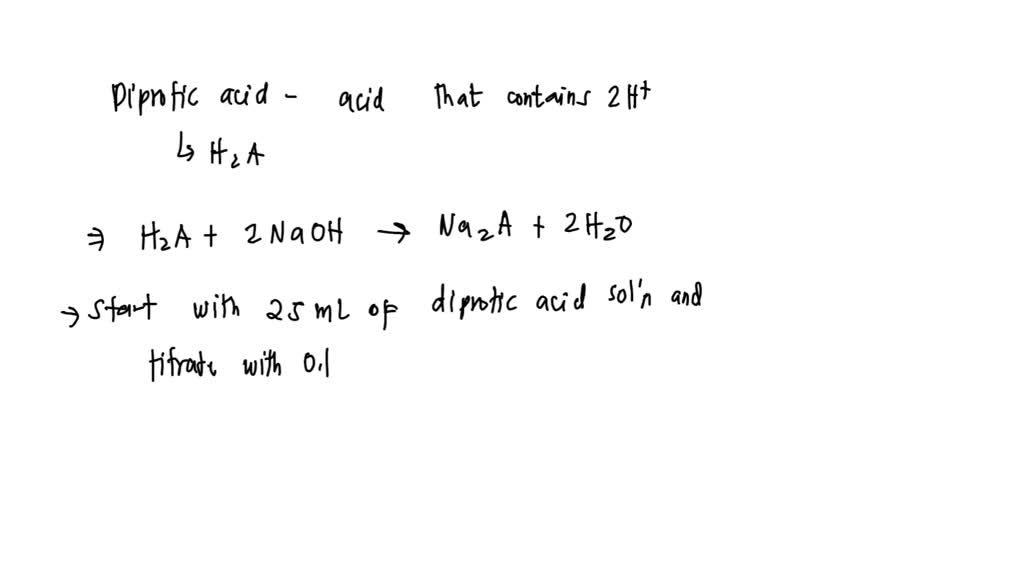 Diprotic acid - acid that contains 2H⁺
↳ H₂A
⇒ H₂A + 2NaOH → Na₂A + 2H₂O
→ Start with 25 mL of diprotic acid sol'n and
titrate with 0.1